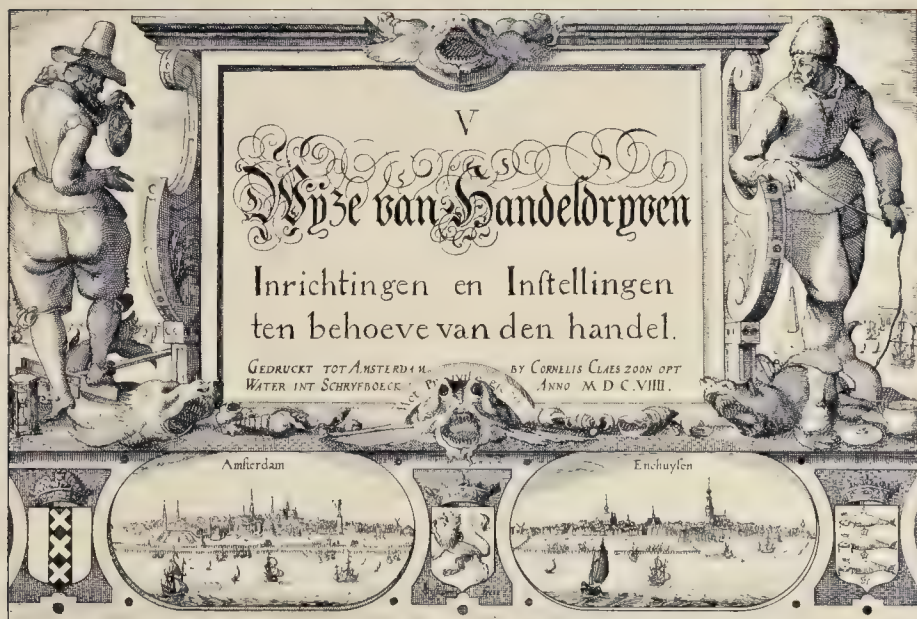 V
Wyze van Handeldryven
Inrichtingen en Inſtellingen
ten behoeve van den handel.
GEDRUCKT TOT AMSTERDAM. BY CORNELIS CLAES ZOON OPT
WATER INT SCHRYFBOECK ANNO M D C. VIIII.
Amſterdam
Enchuyſen